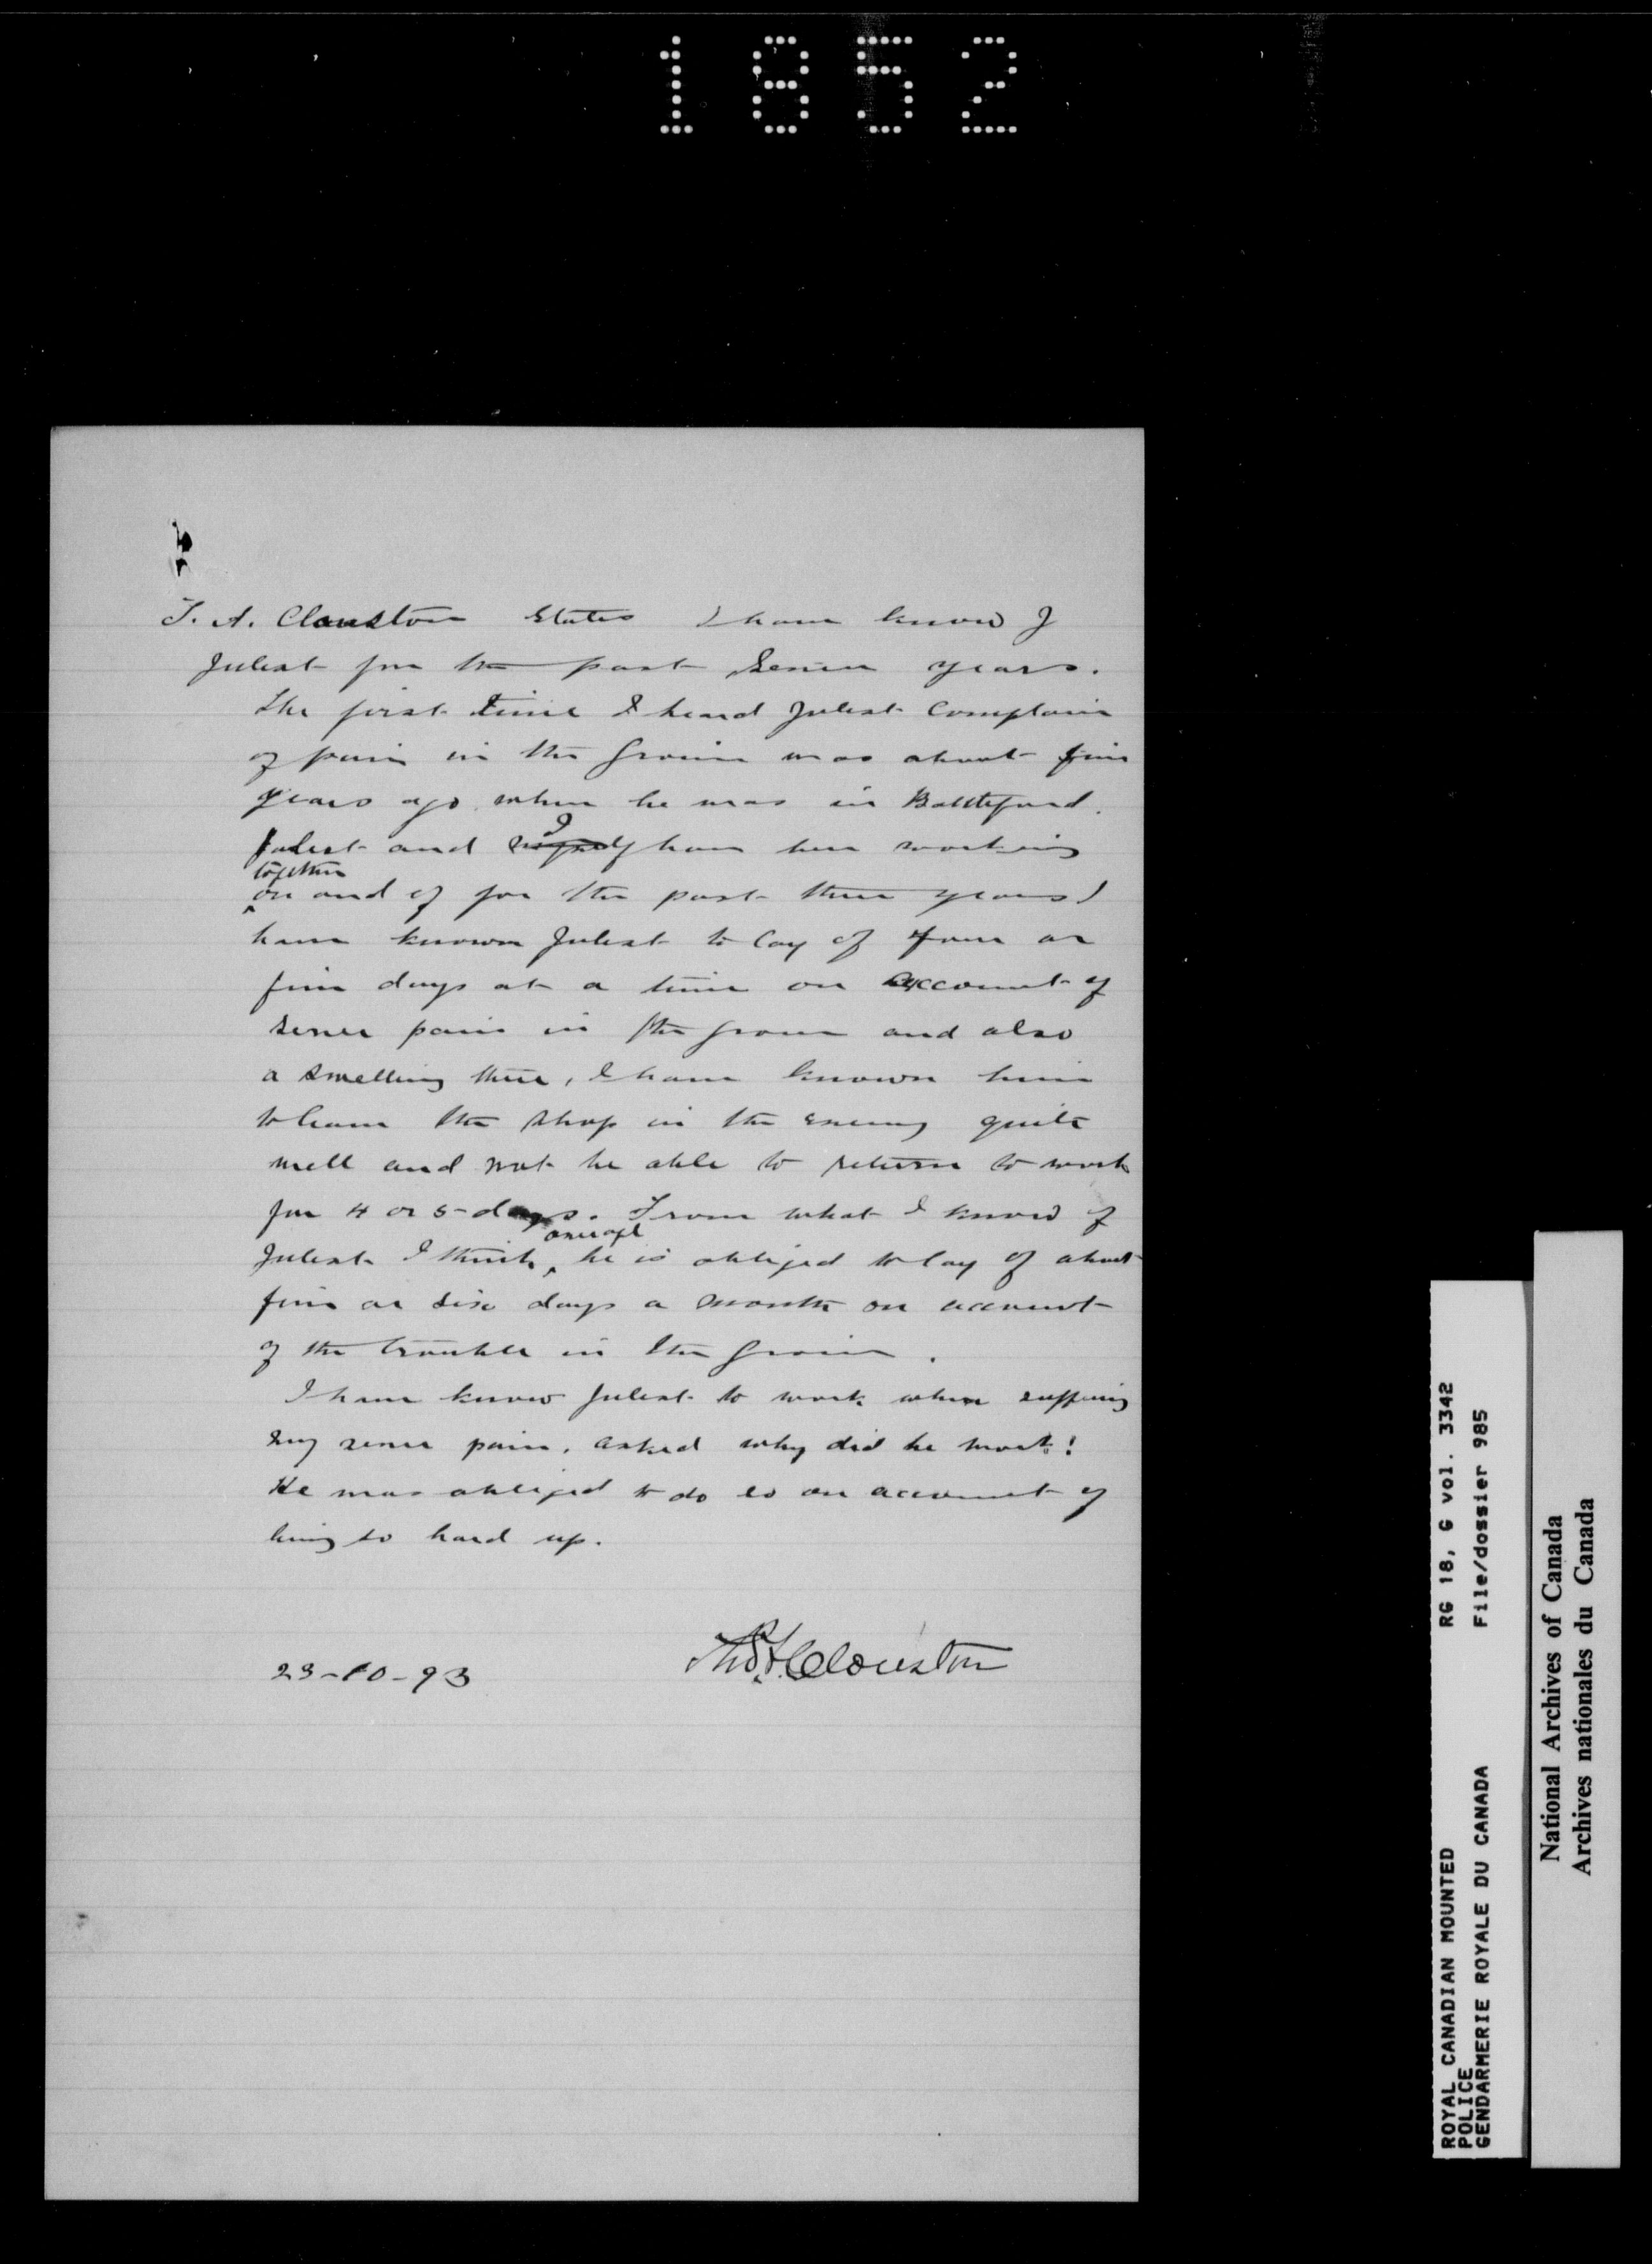 1852
T. A. Clouston States I have know J
Julest for the past seven years.
The first time I heard Julest Complain
of pain in the Groin was about five
years ago when he was in Battleford.
Julest and I have been working
together
on and of for the past three years I
have known Julest to lay of four or
five days at a time on account of
sever pain in the groin and also
a swelling there, I have known him
to leave the shop in the evening quite
well and not be able to return to work
for 4 or 5 days. From what I know of
Julest I think, he is obliged to lay of about
five or six days a month on account
of the trouble in the Groin.
I have know Julest to work when suffering
very sever pain. asked why did he work!
He was obliged to do so on account of
being so hard up.
23-10-93
Thos A. Clouston
ROYAL CANADIAN MOUNTED RG 18, G vol. 3342
POLICE
GENDARMERIE ROYALE DU CANADA File/dossier 985
National Archives of Canada
Archives nationales du Canada